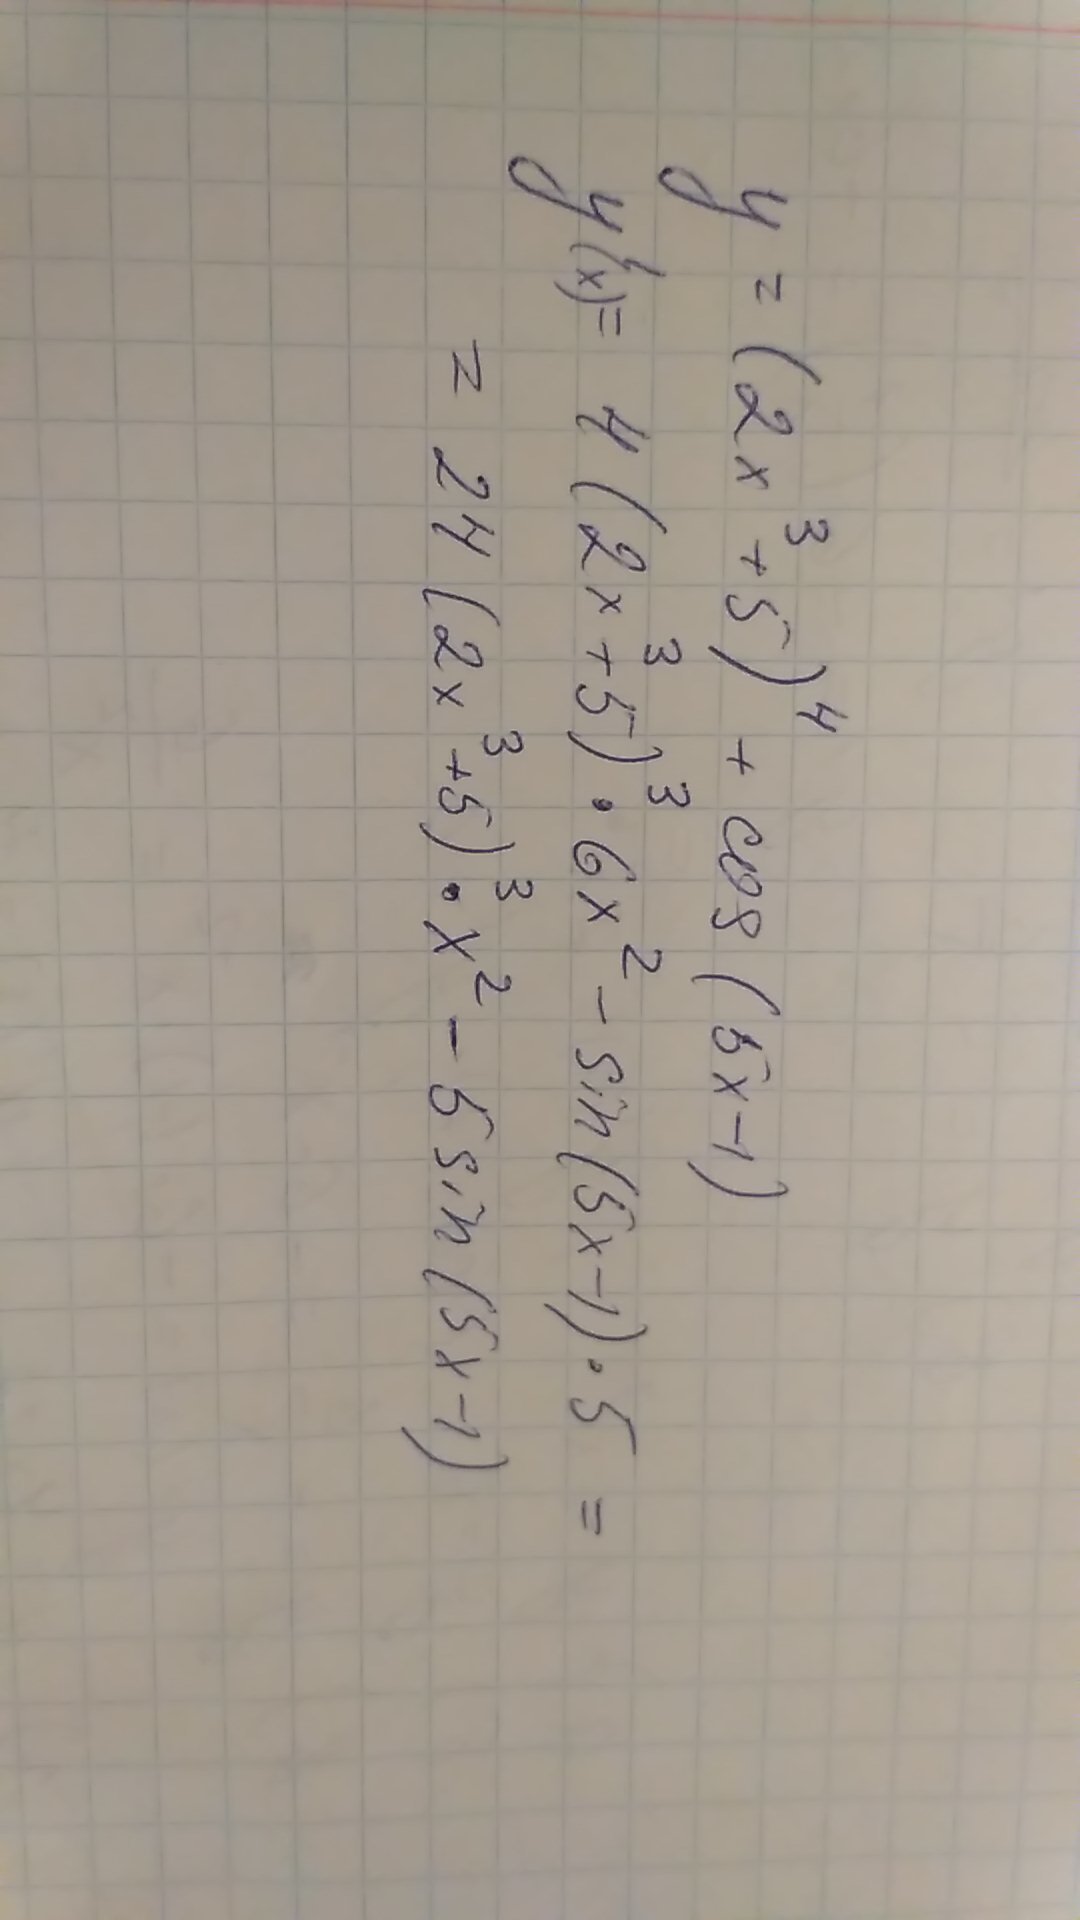 y = (2x³+5)⁴ + cos(5x-1)
y'(x) = 4(2x³+5)³ · 6x² - sin(5x-1) · 5 =
= 24(2x³+5)³ · x² - 5sin(5x-1)